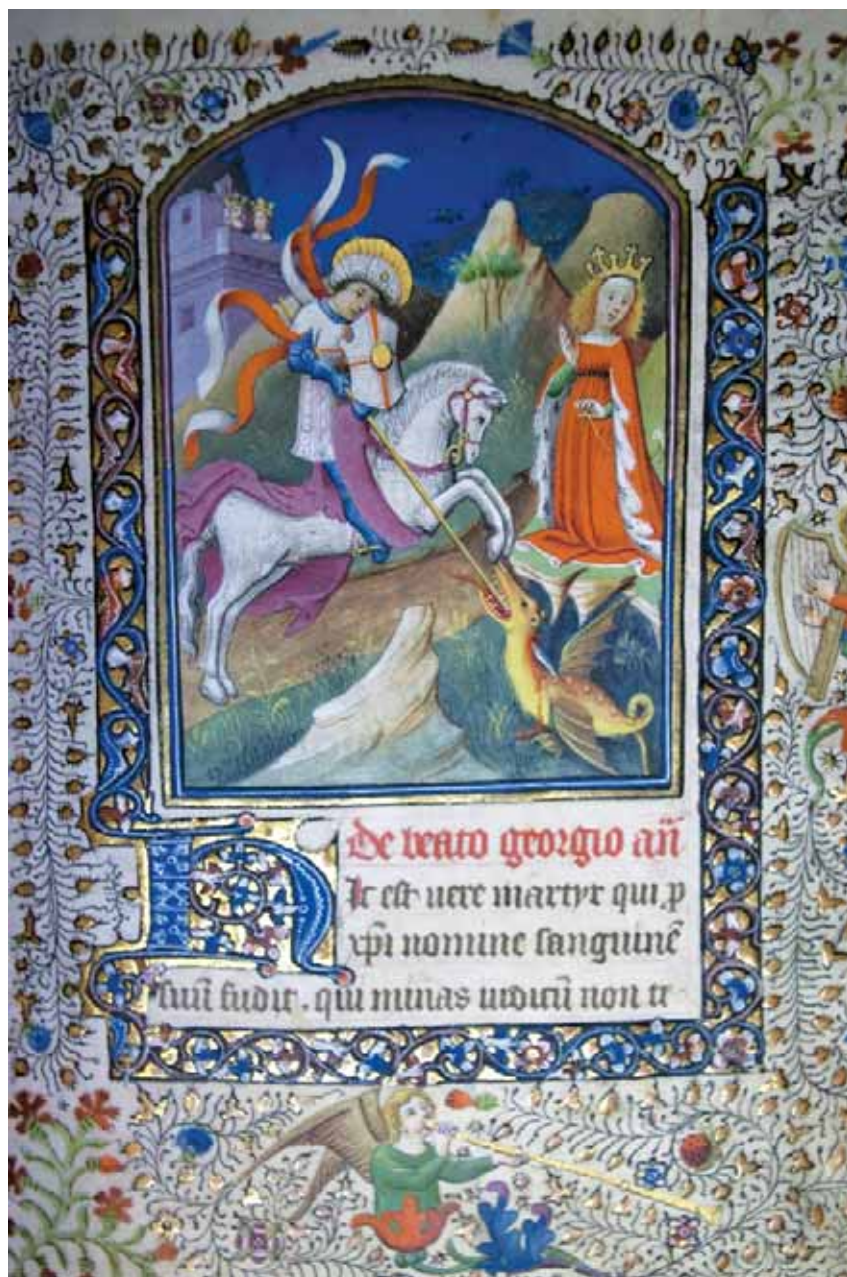 De beato georgio añ
Hic est uere martyr qui p
xp̄i nomine sanguinē
suū fudit. qui minas iudicū non ti